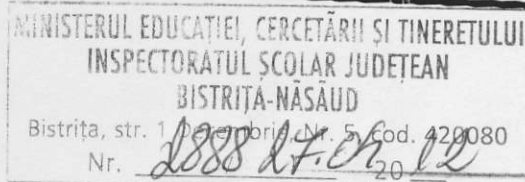 MINISTERUL EDUCAȚIEI, CERCETĂRII ȘI TINERETULUI
INSPECTORATUL ȘCOLAR JUDEȚEAN
BISTRIȚA-NĂSĂUD
Bistrița, str. 1 Decembrie, Nr. 5, cod. 420080
Nr. 2888 27. 20 12